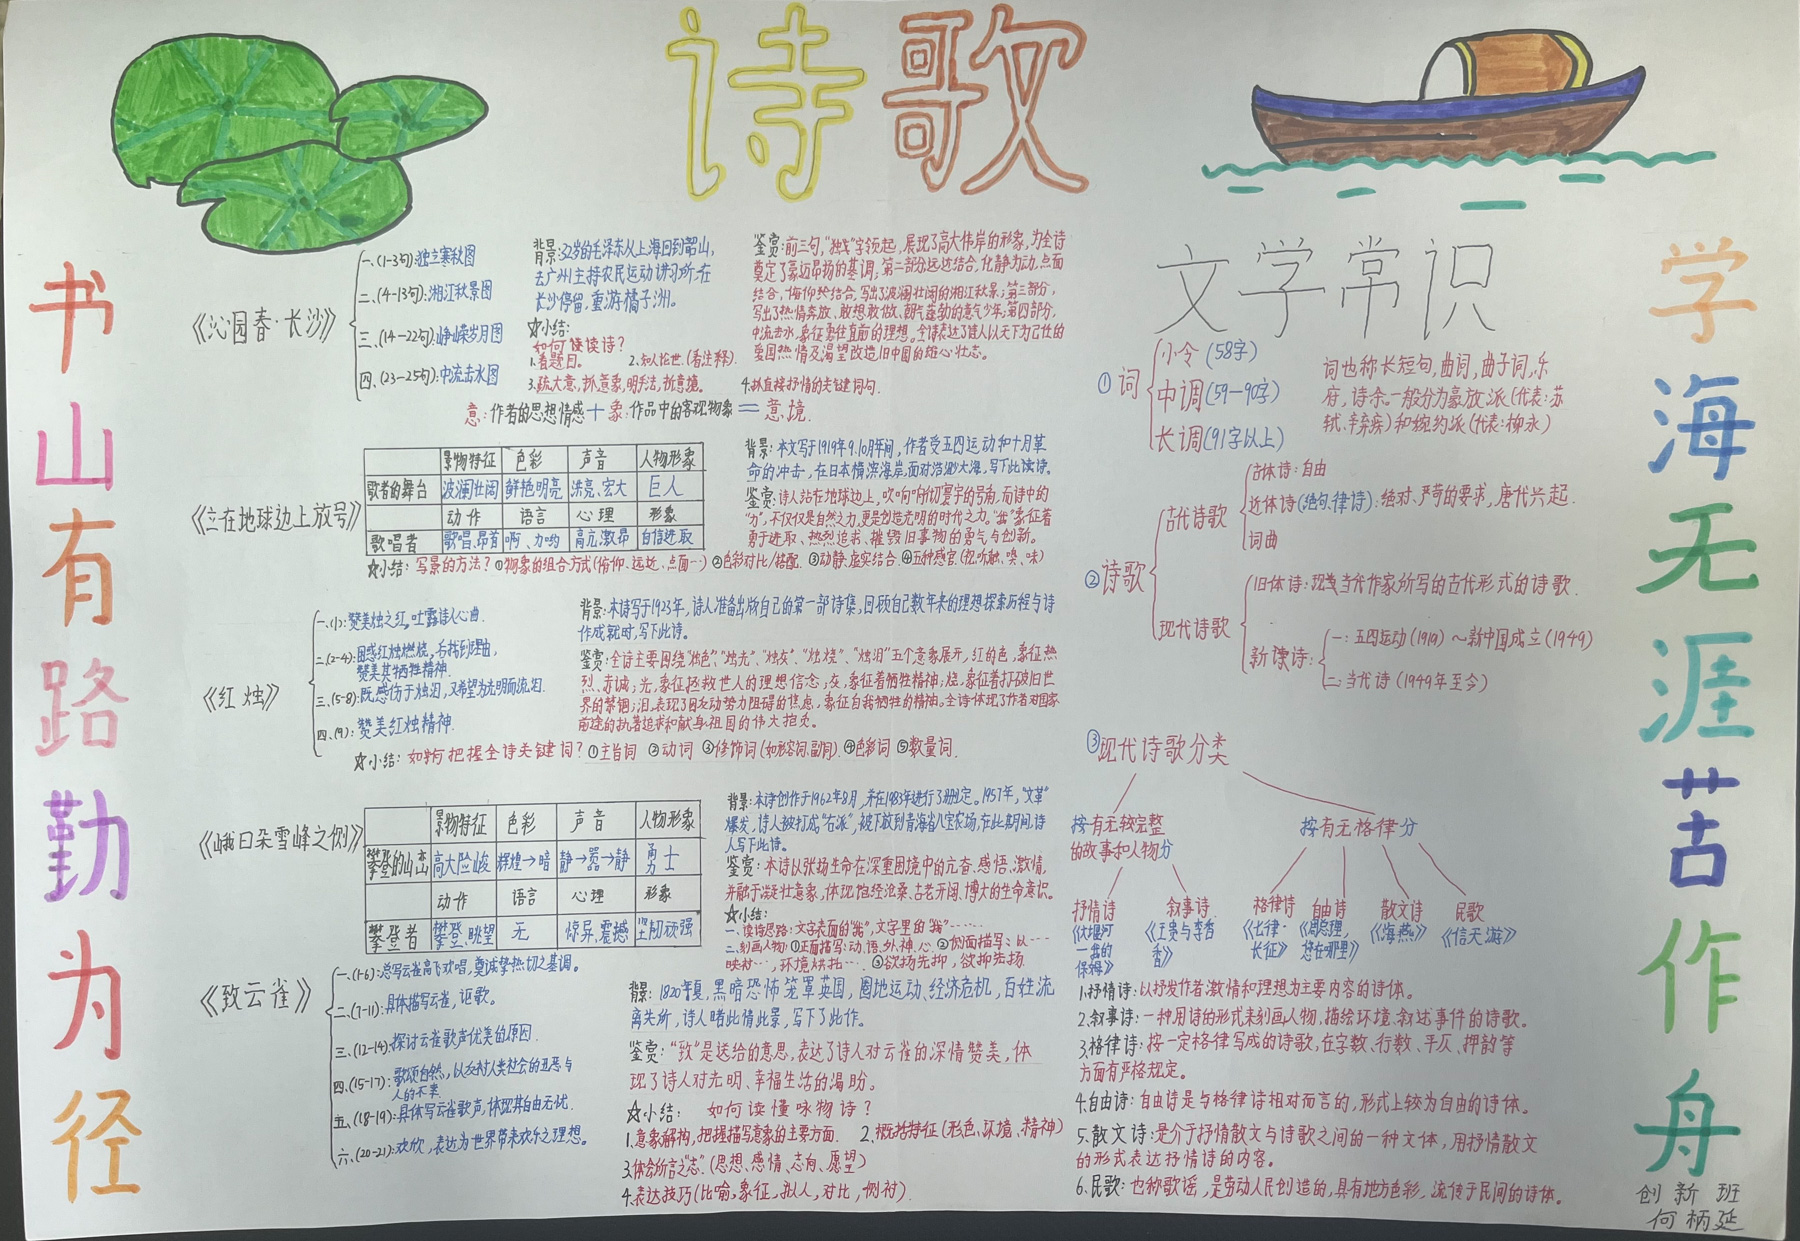 诗歌
书山有路勤为径
学海无涯苦作舟
《沁园春·长沙》
一、(1-3句):独立寒秋图
二、(4-13句):湘江秋景图
三、(14-22句):峥嵘岁月图
四、(23-25句):中流击水图
背景:32岁的毛泽东从上海回到韶山,
去广州主持农民运动讲习所,在
长沙停留,重游橘子洲。
☆小结:
如何读读诗?
1.看题目。 2.知人论世.(看注释).
3.疏大意,抓意象,明手法,析意境。 4.抓直接抒情的关键词句.
鉴赏:前三句,"独我"字领起,展现了高大伟岸的形象,为全诗
奠定了豪迈昂扬的基调;第二部分远近结合,化静为动,点面
结合,俯仰结合,写出了波澜壮阔的湘江秋景;第三部分,
写出了热情奔放、敢想敢做、朝气蓬勃的意气少年;第四部分,
中流击水,象征勇往直前的理想。全诗表达了诗人以天下为己任的
爱国热情及渴望改造旧中国的雄心壮志。
意:作者的思想情感+象:作品中的客观物象=意境.
《立在地球边上放号》
景物特征 色彩 声音 人物形象
歌者的舞台 波澜壮阔 鲜艳明亮 洪亮、宏大 巨人
动作 语言 心理 形象
歌唱者 歌唱、昂首 啊、力哟 高亢、激昂 自信进取
背景:本文写于1919年9.10月年间,作者受五四运动和十月革
命的冲击,在日本横滨海岸,面对浩渺大海,写下此读诗.
鉴赏:诗人站在地球边上,吹响寰宇的号角,而诗中的
"力",不仅仅是自然之力,更是创造光明的时代之力。"我"象征着
勇于进取、热烈追求、摧毁旧事物的勇气与创新。
☆小结:写景的方法?①物象的组合方式(俯仰、远近、点面一) ②色彩对比/搭配. ③动静、虚实结合. ④五种感官(视、听、触、嗅、味)
《红烛》
一、(1):赞美烛之红,吐露诗人心曲.
二、(2-4):困惑红烛燃烧,后找到理由,
赞美其牺牲精神.
三、(5-8):既感伤于烛泪,又希望为光明而流泪.
四、(9):赞美红烛精神.
背景:本诗写于1923年,诗人准备出版自己的第一部诗集,回顾自己数年来的理想探索历程与诗
作成就时,写下此诗。
鉴赏:全诗主要围绕"烛色"、"烛光"、"烛灰"、"烛烧"、"烛泪"五个意象展开,红的色,象征热
烈、赤诚;光,象征拯救世人的理想信念;灰,象征着牺牲精神;烧,象征着打破旧世
界的禁锢;泪,表现了因反动势力阻碍的焦虑,象征自我牺牲的精神。全诗体现了作者对国家
前途的执著追求和献身祖国的伟大抱负。
☆小结:如何把握全诗关键词?①主旨词 ②动词 ③修饰词(如形容词、副词). ④色彩词 ⑤数量词.
《峨日朵雪峰之侧》
景物特征 色彩 声音 人物形象
攀登的山峦 高大险峻 辉煌→暗 静→嚣→静 勇士
动作 语言 心理 形象
攀登者 攀登、眺望 无 惊异、震撼 坚韧顽强
背景:本诗创作于1962年8月,并在1983年进行了删定。1957年,"文革"
爆发,诗人被打成"右派",被下放到青海省八宝农场,在此期间,诗
人写下此诗。
鉴赏:本诗以张扬生命在深重困境中的亢奋、感悟、激情,
并融于凝壮意象,体现饱经沧桑、古老开阔、博大的生命意识。
☆小结:
一、读诗思路:文字表面的"我",文字里的"我"……
二、刻画人物:①正面描写:动、语、外、神、心. ②侧面描写:以…
映衬…,环境烘托… ③欲扬先抑,欲抑先扬.
《致云雀》
一、(1-6):总写云雀高飞欢唱,奠诚挚热切之基调。
二、(7-11):具体描写云雀,讴歌。
三、(12-14):探讨云雀歌声优美的原因.
四、(15-17):歌颂自然,以反衬人类社会的丑恶与
人的不幸.
五、(18-19):具体写云雀歌声,体现其自由无忧.
六、(20-21):欢欣,表达为世界带来欢乐之理想。
背景:1820年夏,黑暗恐怖笼罩英国,圈地运动、经济危机,百姓流
离失所,诗人睹此情此景,写下了此作。
鉴赏:"致"是送给的意思,表达了诗人对云雀的深情赞美,体
现了诗人对光明、幸福生活的渴盼。
☆小结: 如何读懂咏物诗?
1.意象解构,把握描写意象的主要方面. 2.概括特征(形色、环境、精神)
3.体会所言之"志".(思想、感情、志向、愿望)
4.表达技巧(比喻,象征,拟人,对比,侧衬).
文学常识
①词
小令(58字)
中调(59-90字)
长调(91字以上)
词也称长短句,曲词,曲子词,乐
府,诗余。一般分为豪放派(代表:苏
轼、辛弃疾)和婉约派(代表:柳永)
②诗歌
古代诗歌
古体诗:自由
近体诗(绝句、律诗):绝对、严苛的要求,唐代兴起.
词曲
现代诗歌
旧体诗:现、当代作家所写的古代形式的诗歌.
新诗:
一:五四运动(1919)~新中国成立(1949)
二:当代诗(1949年至今)
③现代诗歌分类
按有无较完整
的故事和人物分
按有无格律分
抒情诗
《大堰河
—我的
保姆》
叙事诗
《王贵与李香
香》
格律诗
《七律·
长征》
自由诗
《周总理,
您在哪里》
散文诗
《海燕》
民歌
《信天游》
1.抒情诗:以抒发作者激情和理想为主要内容的诗体。
2.叙事诗:一种用诗的形式来刻画人物,描绘环境、叙述事件的诗歌。
3.格律诗:按一定格律写成的诗歌,在字数、行数、平仄、押韵等
方面有严格规定。
4.自由诗:自由诗是与格律诗相对而言的,形式上较为自由的诗体。
5.散文诗:是介于抒情散文与诗歌之间的一种文体,用抒情散文
的形式表达抒情诗的内容。
6.民歌:也称歌谣,是劳动人民创造的,具有地方色彩,流传于民间的诗体.
创新班
何柄延